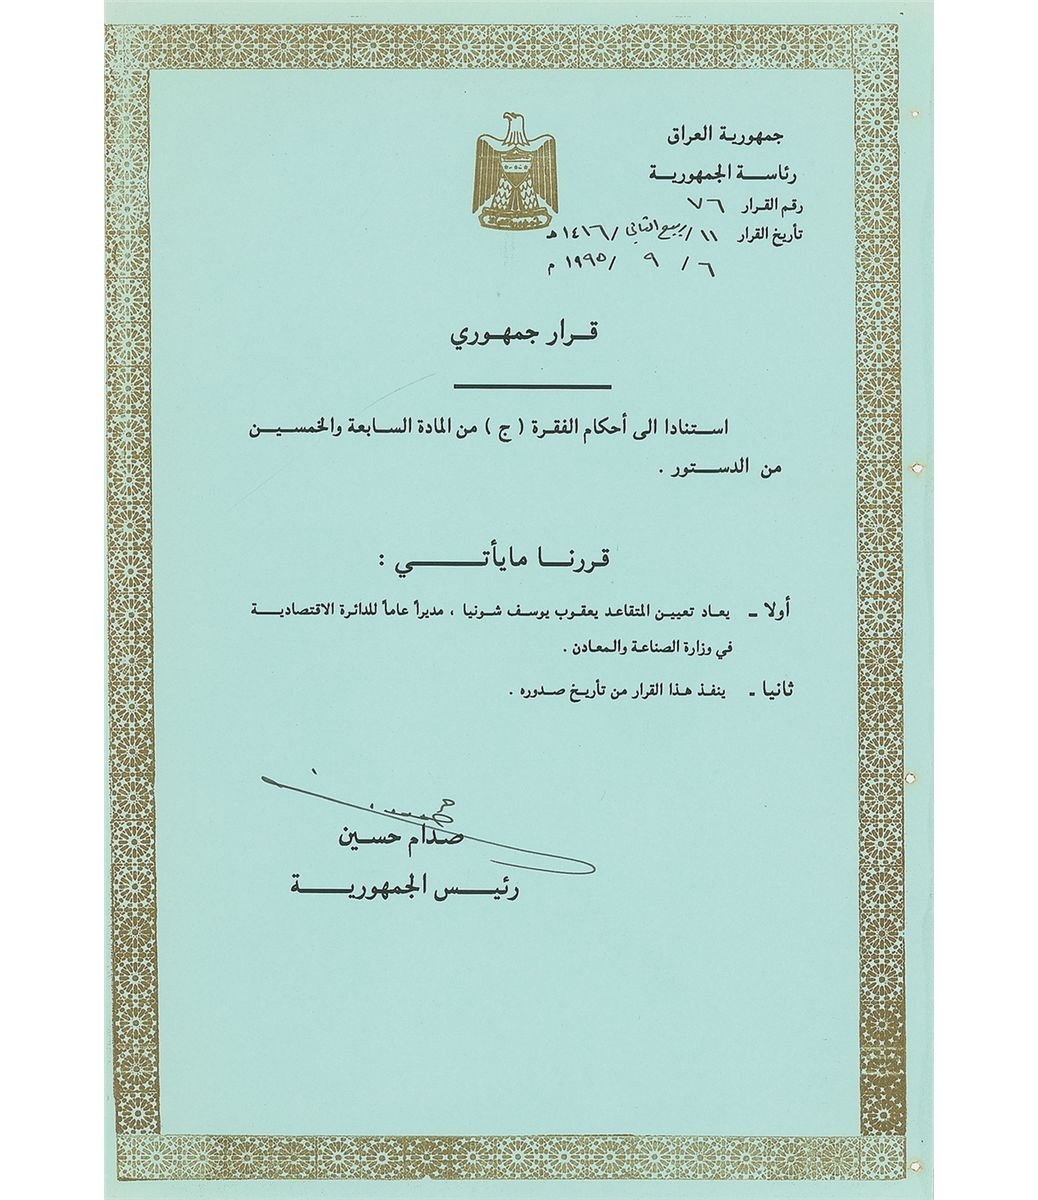 جمهورية العراق
رئاسة الجمهورية
رقم القرار ٧٦
تأريخ القرار ١١ / ربيع الثاني / ١٤١٦ هـ
٦ / ٩ / ١٩٩٥ م
قرار جمهوري
استنادا الى أحكام الفقرة ( ج ) من المادة السابعة والخمسين
من الدستور .
قررنا مايأتي :
أولا - يعاد تعيين المتقاعد يعقوب يوسف شونيا ، مديراً عاماً للدائرة الاقتصادية
في وزارة الصناعة والمعادن .
ثانيا - ينفذ هذا القرار من تأريخ صدوره .
صدام حسين
رئيس الجمهورية